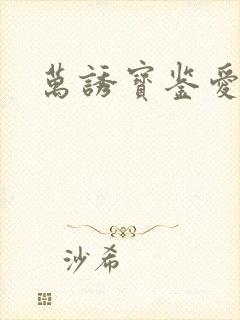 萬誘寳鉴愛
沙希